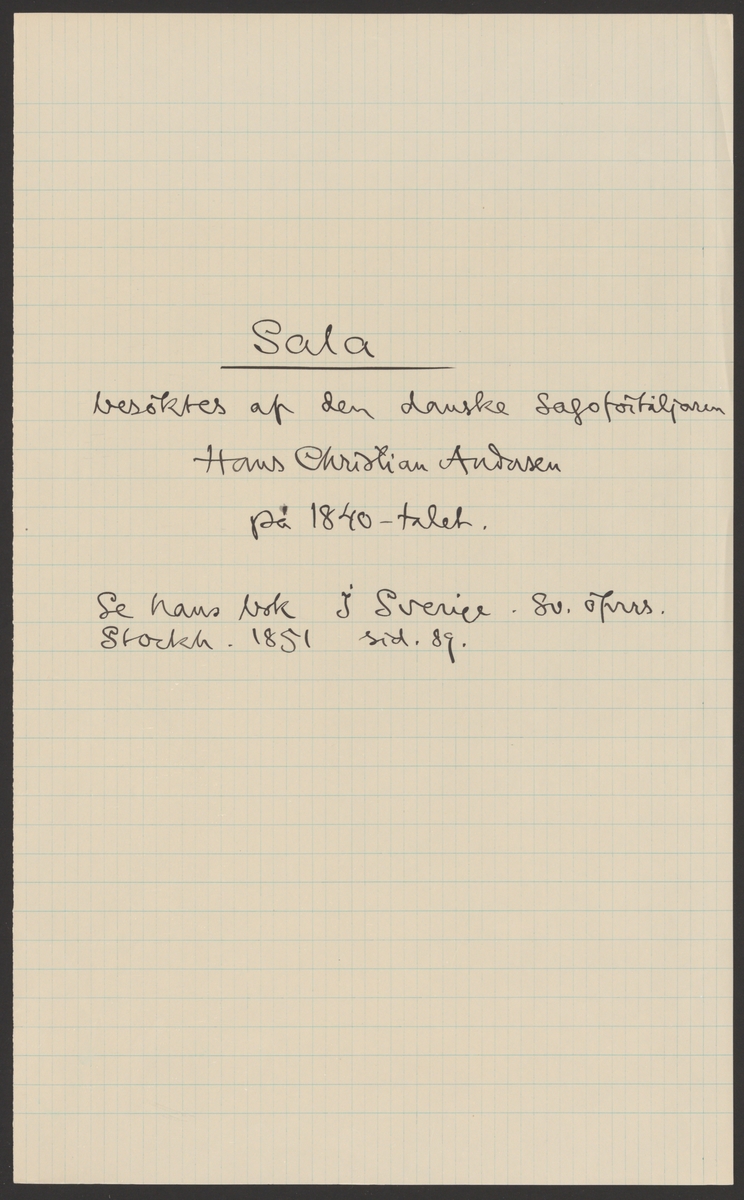 Sala
besöktes af den danske Sagoförtäljaren
Hans Christian Andersen
på 1840-talet.
Se hans bok I Sverige. Sv. öfvers.
Stockh. 1851 sid. 89.